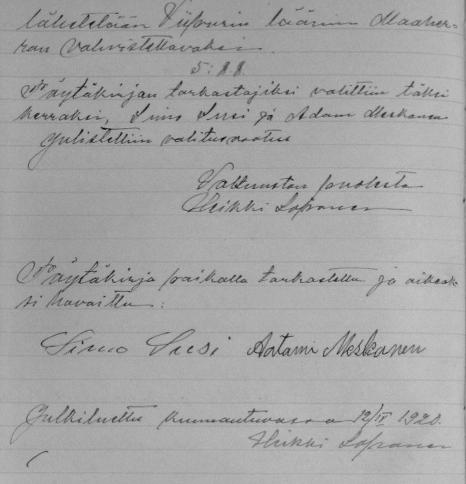 lähetetään Viipurin läänin Maaher-
ran vahvistettavaksi.
5: §§
Pöytäkirjan tarkastajiksi valittiin täksi
kerraksi, Simo Susi ja Adam Meskanen
Julistettiin valitusosotus
Valtuuston puolesta
Heikki Sopanen
Pöytäkirja paikalla tarkastettu ja oikeak-
si havaittu:
Simo Susi Aatami Meskanen
Julkiluettu kuulutuvassa 12/IV 1920.
Heikki Sopanen